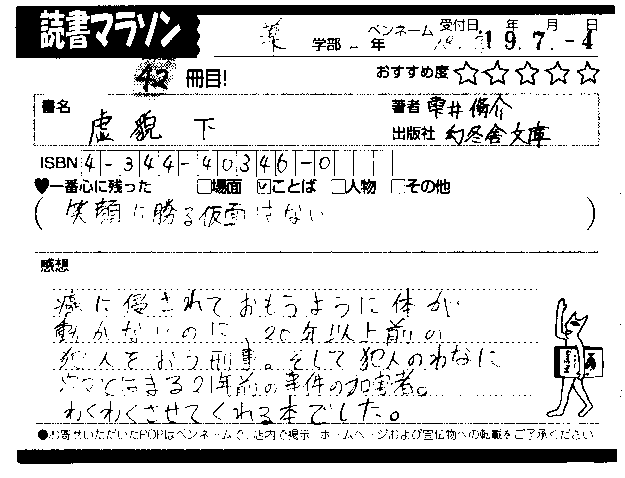 読書マラソン
薬 学部 年 ペンネーム 受付日 年 月 日
19.7.-4
42 冊目! おすすめ度☆☆☆☆☆
書名 虚貌 下
著者 雫井脩介
出版社 幻冬舎文庫
ISBN 4-344-40346-0
♥一番心に残った □場面 ☑ことば □人物 □その他
(笑顔に勝る仮面はない)
感想
癌に侵されておもうように体が
動かないのに、20年以上前の
犯人をおう刑事。そして犯人のわなに
はまる21年前の事件の加害者。
わくわくさせてくれる本でした。
●お寄せいただいたPOPはペンネームで、店内で掲示・ホームページおよび宣伝物への転載をご了承ください